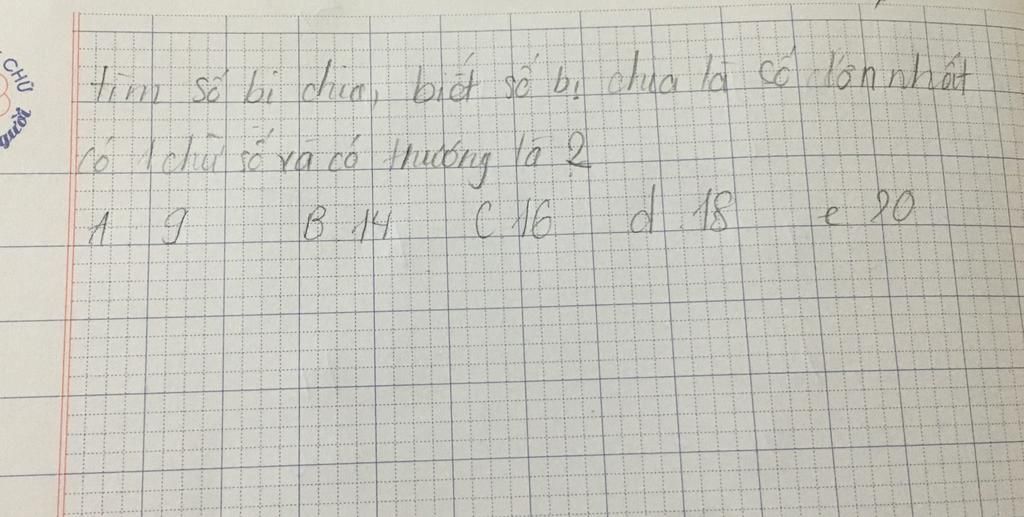 CHỮ
gười
tìm số bị chia, biết số bị chia là có lớn nhất
có 1 chữ số và có thương là 2
A 9 B 14 C 16 d 18 e 20